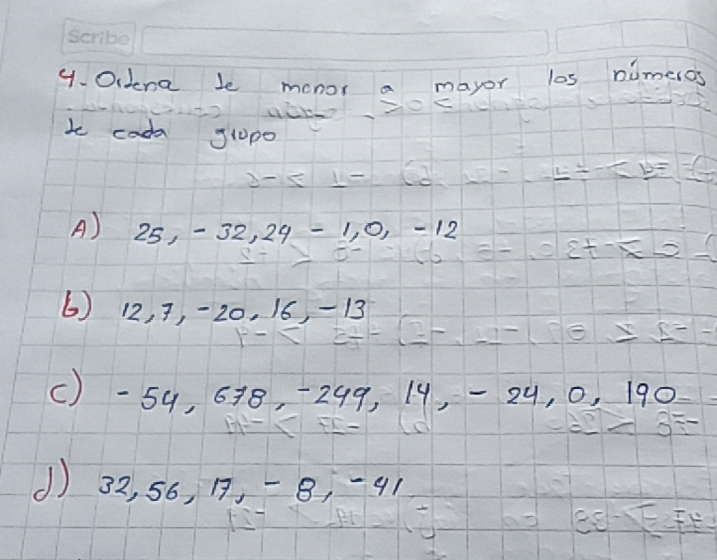 Scribe
4. Ordena de menor a mayor los números
de cada grupo
A) 25, -32, 29 -1, 0, -12
b) 12, 7, -20, 16, -13
c) -54, 678, -249, 14, -24, 0, 190
d) 32, 56, 17, -8, -41